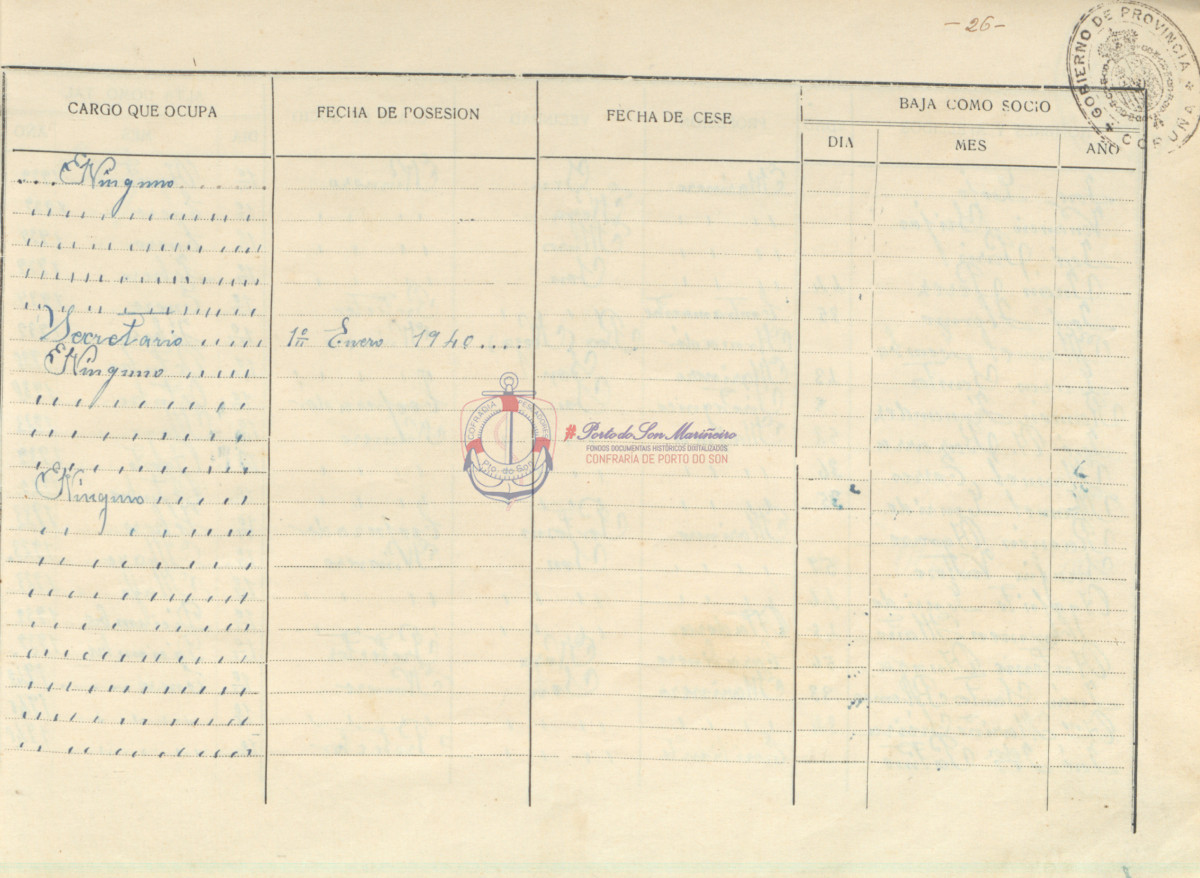 - 26 -
GOBIERNO DE PROVINCIA
CORUÑA
CARGO QUE OCUPA
FECHA DE POSESION
FECHA DE CESE
BAJA COMO SOCIO
DIA
MES
AÑO
Ninguno
Secretario 1º Enero 1940
Ninguno
Ninguno
COFRADIA PESCADORES
Pto. do Son
#Porto do Son Mariñeiro
FONDOS DOCUMENTAIS HISTÓRICOS DIGITALIZADOS
CONFRARÍA DE PORTO DO SON